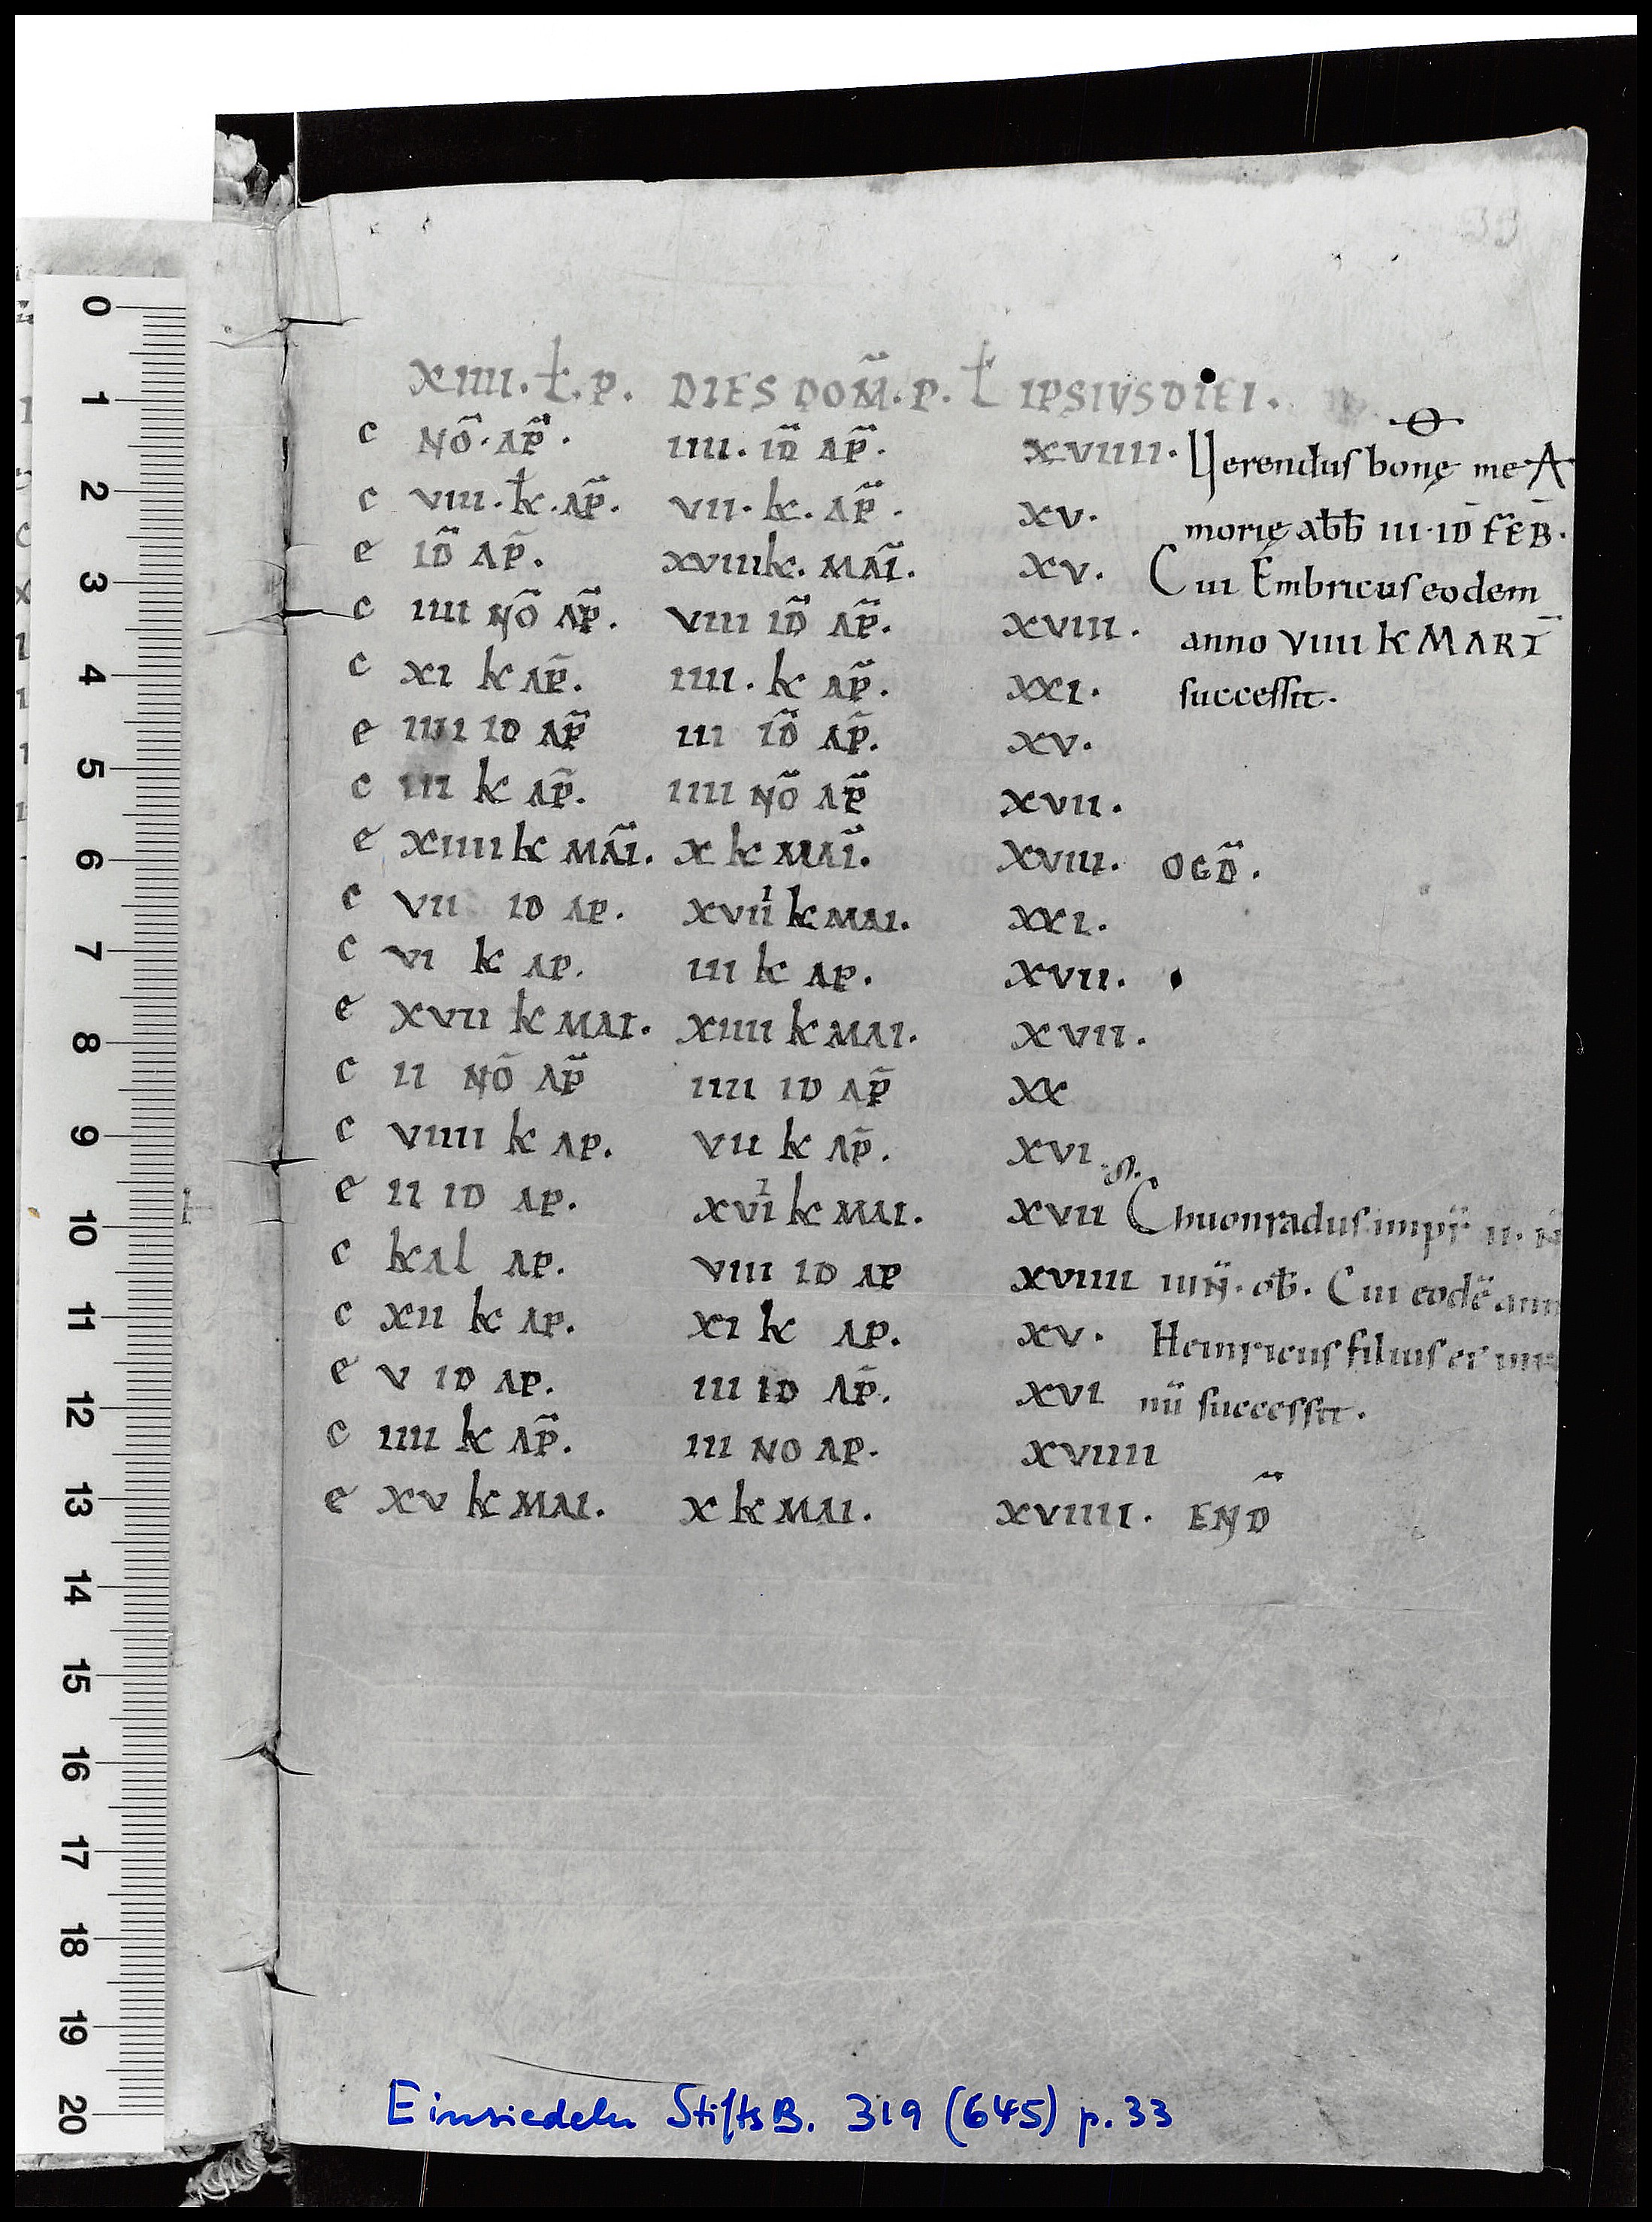 33
XIIII. ł. P. DIES DOM̃. P. ł IPSIUS DIEI.
c NÕ. AP̃. IIII. ID̃ AP̃. XVIIII. Ųerendus bonę me A
c VIII. k. AP̃. VII. k. AP̃. XV. morię abb III. ID FEB.
e ID̃ AP̃. XVIII k. MAĨ. XV. Cui Embricus eodem
c IIII NÕ AP̃. VIII ID̃ AP̃. XVIII. anno VIIII K MART̄
c XI k AP̃. IIII. k AP̃. XXI. successit.
e IIII ID AP̃ III ID̃ AP̃. XV.
c III k AP̃. IIII NÕ AP̃ XVII.
e XIIII k MAĨ. X k MAĨ. XVIII. OGD̃.
c VII ID AP. XVII k MAI. XXI.
c VI k AP. III k AP. XVII.
e XVII k MAI. XIIII k MAI. XVII.
c II NÕ AP̃ IIII ID AP̃ XX
c VIIII k AP. VII k AP̃. XVI
e II ID AP. XVI k MAI. XVII Chuonradus impr̃ II. N
c kal AP. VIII ID AP XVIIII IIII. ob. Cui eodẽ ann
c XII k AP. XI k AP. XV. Heinricus filius ei
e V ID AP. III ID AP̃. XVI successit.
c IIII k AP̃. III NO AP. XVIIII
e XV k MAI. X k MAI. XVIIII. END̃
Einsiedeln StiftsB. 319 (645) p. 33
0
1
2
3
4
5
6
7
8
9
10
11
12
13
14
15
16
17
18
19
20